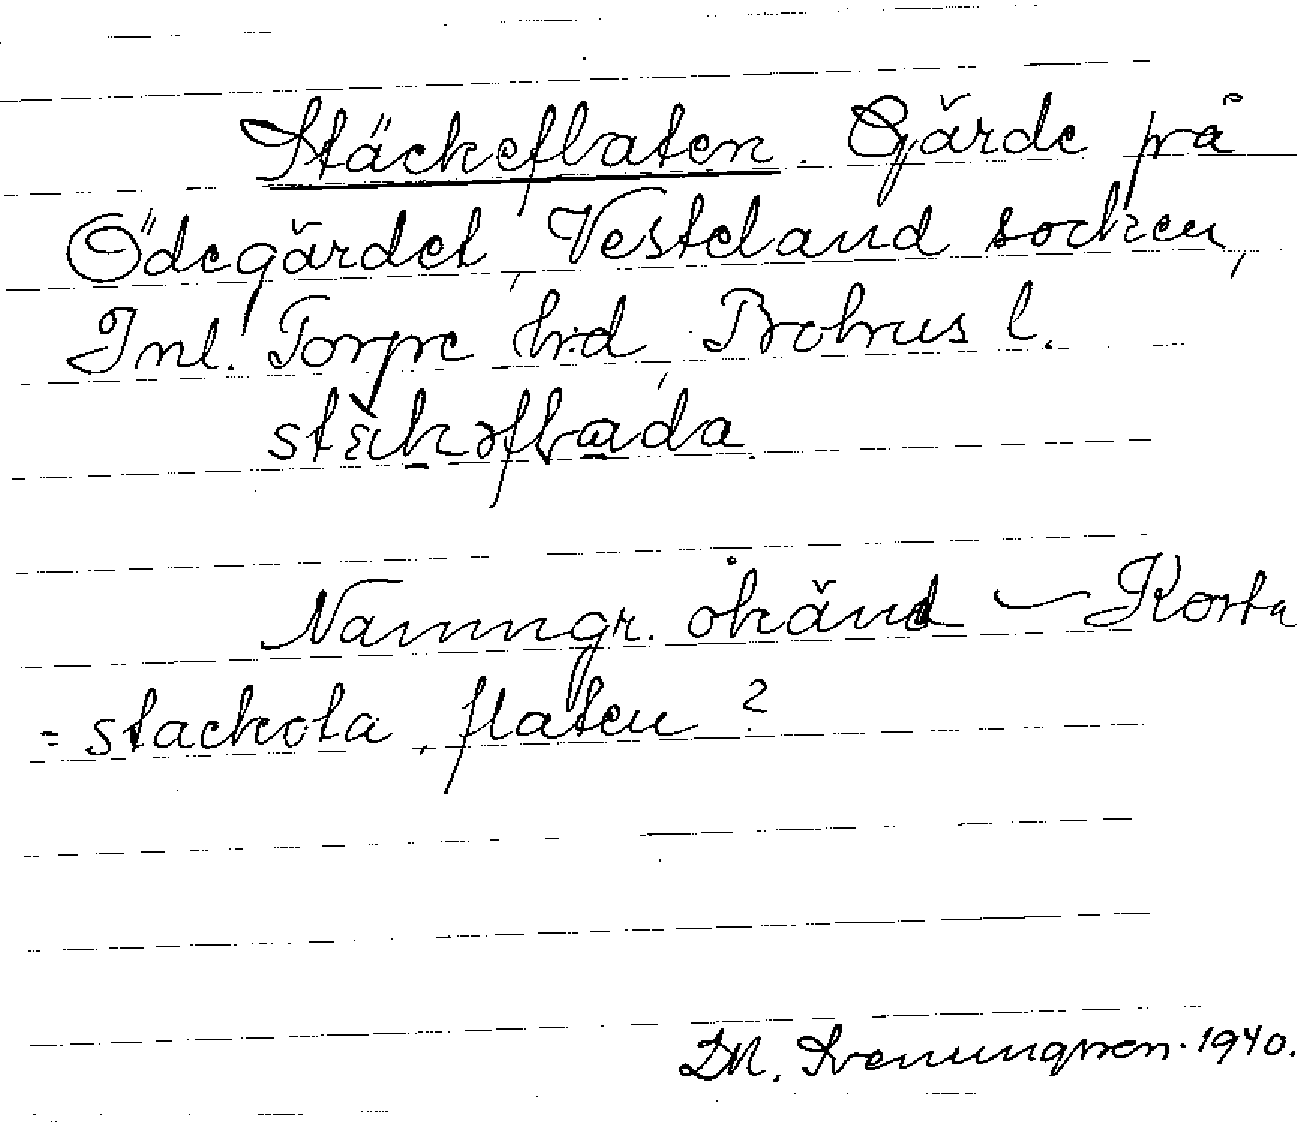 Stäckeflaten. Gärde på
Ödegärdet, Vesteland socken,
Inl. Torpe hrd, Bohus l.
stäkəflada
Namngr. okänd — Korta
= stackota, flaten?
DN. Svenungsson. 1940.